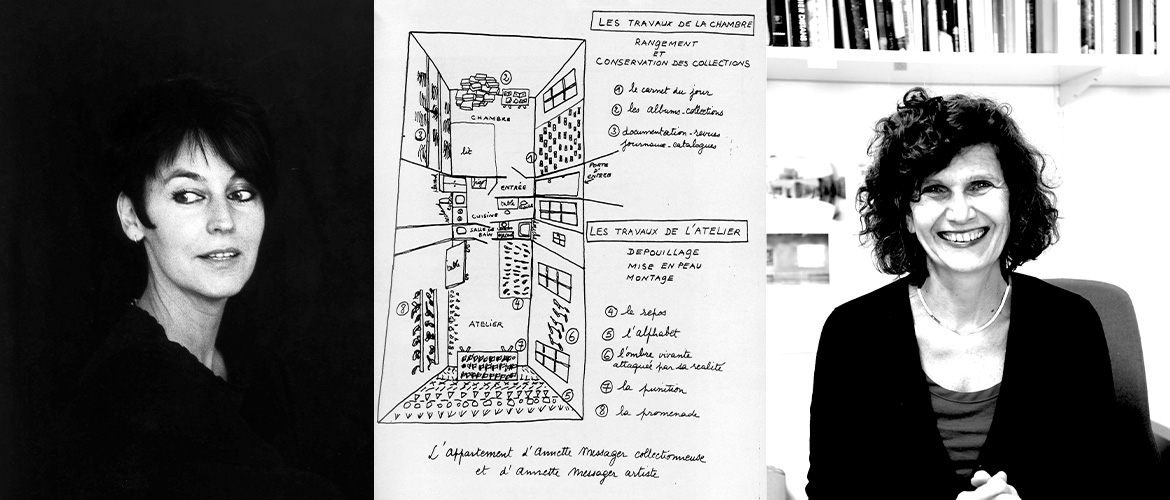 LES TRAVAUX DE LA CHAMBRE
RANGEMENT
ET
CONSERVATION DES COLLECTIONS
① le carnet du jour
② les albums-collections
③ documentation-revues
journaux-catalogues
②
CHAMBRE
③
lit
①
PORTE
D'
ENTRÉE
ENTRÉE
table
CUISINE
SALLE DE
BAIN
table
④
⑧
ATELIER
⑥
⑦
⑤
LES TRAVAUX DE L'ATELIER
DEPOUILLAGE
MISE EN PEAU
MONTAGE
④ le repos
⑤ l'alphabet
⑥ l'ombre vivante
attaquée par sa realité
⑦ la punition
⑧ la promenade
L'appartement d'Annette Messager collectionneuse
et d'Annette Messager artiste